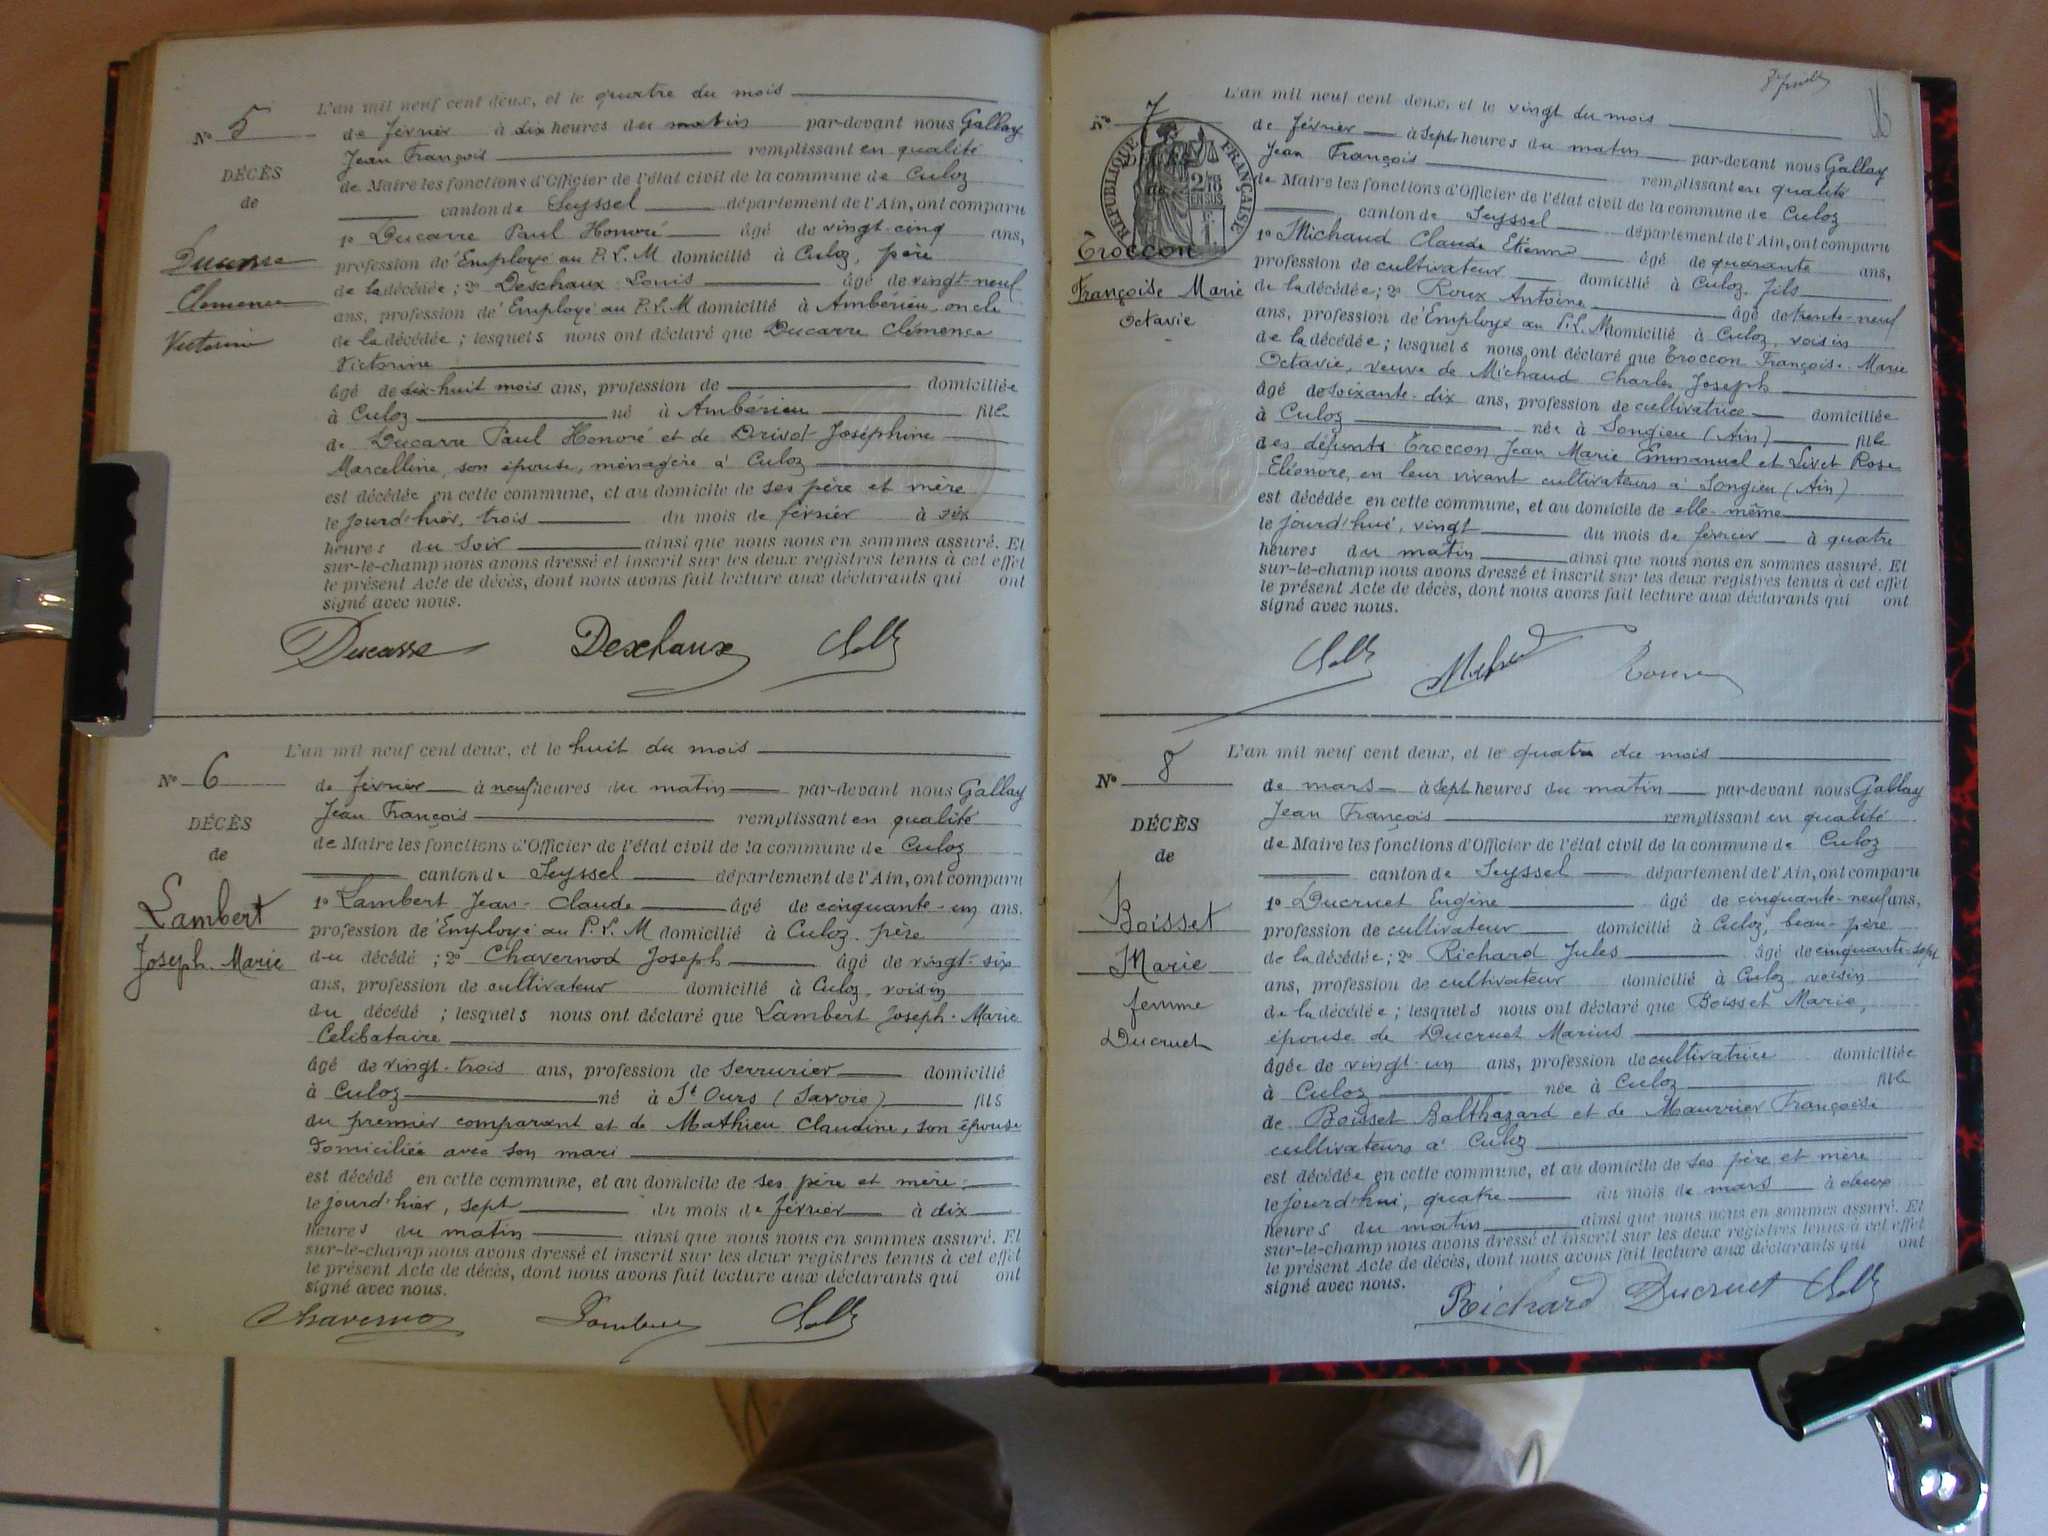 L'an mil neuf cent deux, et le quatre du mois
N° 5
de février à dix heures du matin par-devant nous Gallay
Jean François remplissant en qualité
DÉCÈS
de Maire les fonctions d'Officier de l'état civil de la commune de Culoz
de
canton de Seyssel département de l'Ain, ont comparu
1° Ducarre Paul Honoré âgé de vingt-cinq ans,
Ducarre
profession d'Employé au P. L. M domicilié à Culoz, père
de la décédée; 2° Deschaux Louis âgé de vingt-neuf
Clémence
ans, profession d'Employé au P. L. M domicilié à Ambérieu, oncle
Victorine
de la décédée; lesquels nous ont déclaré que Ducarre Clémence
Victorine
âgé de dix-huit mois ans, profession de domiciliée
à Culoz né à Ambérieu fille
de Ducarre Paul Honoré et de Drivot Joséphine
Marcelline, son épouse, ménagère à Culoz
est décédée en cette commune, et au domicile de ses père et mère
le jourd'hier, trois du mois de février à six
heures du soir ainsi que nous nous en sommes assuré. Et
sur-le-champ nous avons dressé et inscrit sur les deux registres tenus à cet effet
le présent Acte de décès, dont nous avons fait lecture aux déclarants qui ont
signé avec nous.
Ducarre Deschaux
L'an mil neuf cent deux, et le huit du mois
N° 6
de février à neuf heures du matin par-devant nous Gallay
Jean François remplissant en qualité
DÉCÈS
de Maire les fonctions d'Officier de l'état civil de la commune de Culoz
de
canton de Seyssel département de l'Ain, ont comparu
1° Lambert Jean-Claude âgé de cinquante-un ans.
Lambert
profession d'Employé au P. L. M domicilié à Culoz. père
Joseph-Marie
du décédé ; 2° Chavernod Joseph âgé de vingt-six
ans, profession de cultivateur domicilié à Culoz, voisin
du décédé ; lesquels nous ont déclaré que Lambert Joseph-Marie
Célibataire
âgé de vingt-trois ans, profession de serrurier domicilié
à Culoz né à St Ours (Savoie) fils
du premier comparant et de Mathieu Claudine, son épouse
domiciliée avec son mari
est décédé en cette commune, et au domicile de ses père et mère
le jourd'hier, sept du mois de février à dix
heures du matin ainsi que nous nous en sommes assuré. Et
sur-le-champ nous avons dressé et inscrit sur les deux registres tenus à cet effet
le présent Acte de décès, dont nous avons fait lecture aux déclarants qui ont
signé avec nous.
Chavernod Lambert
L'an mil neuf cent deux, et le vingt du mois
N° 7
de février à sept heures du matin par-devant nous Gallay
Jean François remplissant en qualité
RÉPUBLIQUE FRANÇAISE
2/10 EN SUS
de Maire les fonctions d'Officier de l'état civil de la commune de Culoz
canton de Seyssel département de l'Ain, ont comparu
Troccon
1° Michaud Claude Etienne âgé de quarante ans,
profession de cultivateur domicilié à Culoz. fils
Françoise Marie
de la décédée; 2° Roux Antoine âgé de trente-neuf
Octavie
ans, profession d'Employé au P. L. M domicilié à Culoz, voisin
de la décédée; lesquels nous ont déclaré que Troccon Françoise-Marie
Octavie, veuve de Michaud Charles Joseph
âgé de soixante-dix ans, profession de cultivatrice domiciliée
à Culoz née à Songieu (Ain) fille
des défunts Troccon Jean Marie Emmanuel et Livet Rose
Eléonore, en leur vivant cultivateurs à Songieu (Ain)
est décédée en cette commune, et au domicile de elle-même
le jourd'hui, vingt du mois de février à quatre
heures du matin ainsi que nous nous en sommes assuré. Et
sur-le-champ nous avons dressé et inscrit sur les deux registres tenus à cet effet
le présent Acte de décès, dont nous avons fait lecture aux déclarants qui ont
signé avec nous.
L'an mil neuf cent deux, et le quatre du mois
N° 8
de mars à sept heures du matin par-devant nous Gallay
Jean François remplissant en qualité
DÉCÈS
de Maire les fonctions d'Officier de l'état civil de la commune de Culoz
de
canton de Seyssel département de l'Ain, ont comparu
1° Ducruet Eugène âgé de cinquante-neuf ans,
Boisset
profession de cultivateur domicilié à Culoz, beau-père
Marie
de la décédée; 2° Richard Jules âgé de cinquante-sept
ans, profession de cultivateur domicilié à Culoz, voisin
femme
de la décédée; lesquels nous ont déclaré que Boisset Marie,
Ducruet
épouse de Ducruet Marius
âgée de vingt-un ans, profession de cultivatrice domiciliée
à Culoz née à Culoz fille
de Boisset Balthazard et de Maurrier Françoise
cultivateurs à Culoz
est décédée en cette commune, et au domicile de ses père et mère
le jourd'hui, quatre du mois de mars à deux
heures du matin ainsi que nous nous en sommes assuré. Et
sur-le-champ nous avons dressé et inscrit sur les deux registres tenus à cet effet
le présent Acte de décès, dont nous avons fait lecture aux déclarants qui ont
signé avec nous.
Richard Ducruet